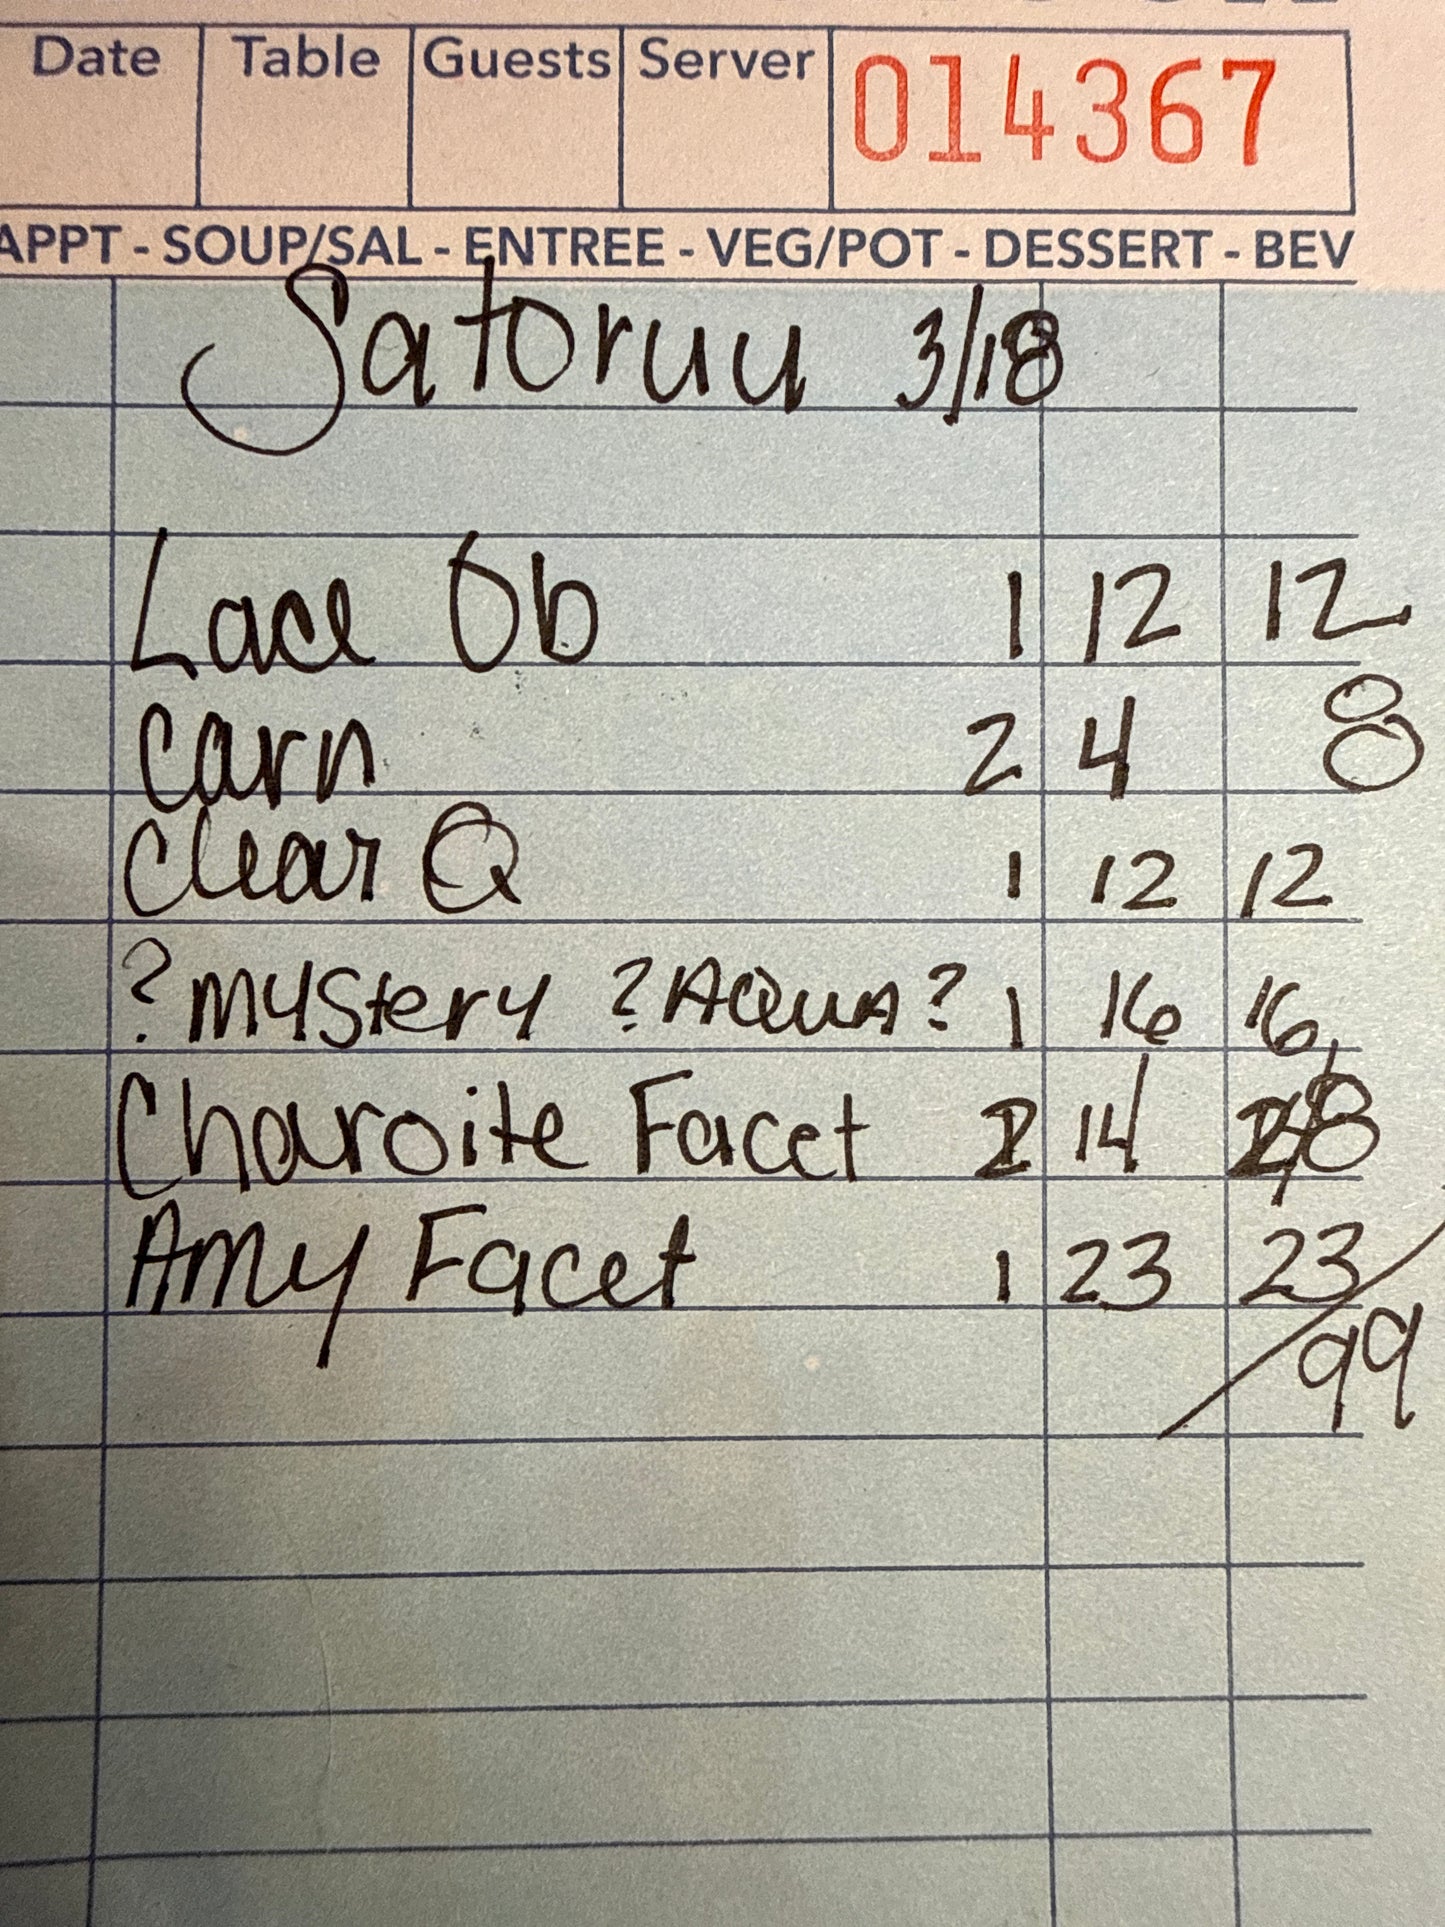 Date Table Guests Server 014367
APPT - SOUP/SAL - ENTREE - VEG/POT - DESSERT - BEV
Satoruu 3/18
Lace Ob 1 12 12
Carn 2 4 8
Clear Q 1 12 12
?Mystery ?AQUA? 1 16 16
Charoite Facet 2 14 28
Amy Facet 1 23 23
99